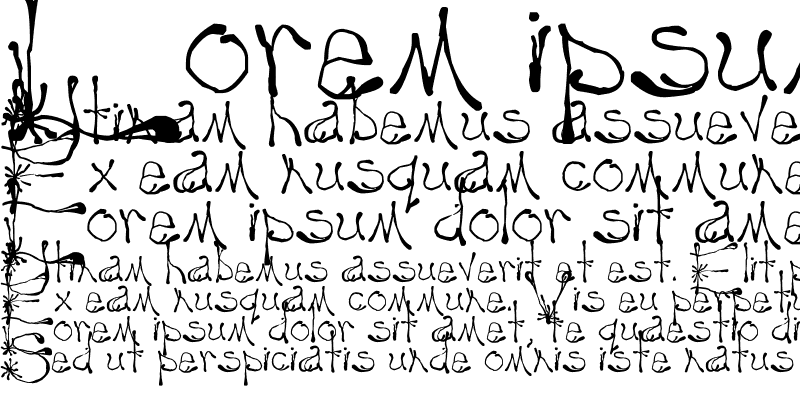 Lorem ipsum
Utinam habemus assueve
Ex eam nusquam commune
Lorem ipsum dolor sit ame
Utinam habemus assueverit et est. Elit p
Ex eam nusquam commune. Vis eu perpet
Lorem ipsum dolor sit amet, te quaestio di
Sed ut perspiciatis unde omnis iste natus